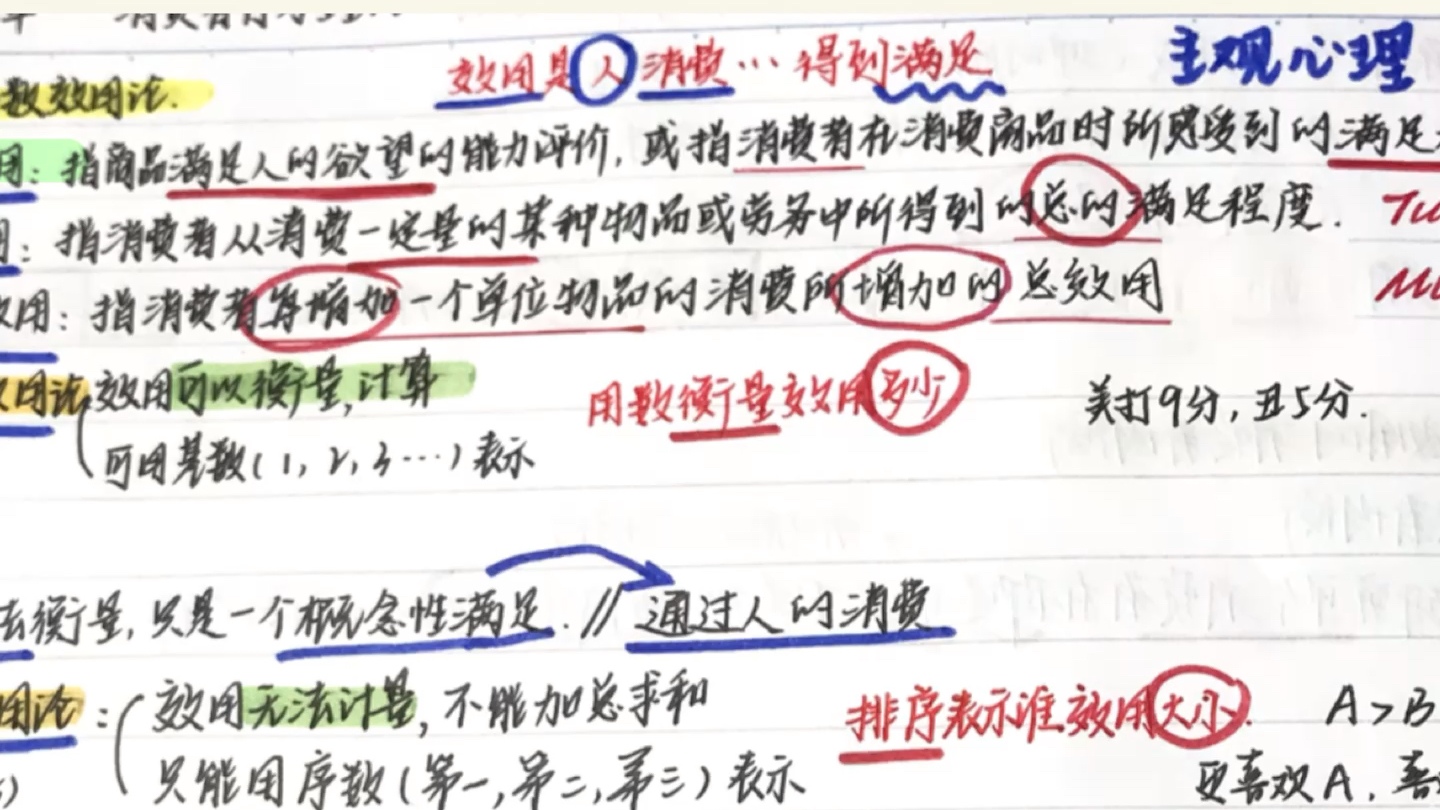 章 消费者行为
效用是人消费…得到满足 主观心理
数效用论.
用：指商品满足人的欲望的能力评价，或指消费者在消费商品时所感受到的满足
用：指消费者从消费一定量的某种物品或劳务中所得到的总的满足程度. TU
效用：指消费者每增加一个单位物品的消费所增加的总效用 MU
用论 效用可以衡量，计算 用数衡量效用多少 美打9分，丑5分.
可用基数(1, 2, 3…)表示
法衡量，只是一个概念性满足. // 通过人的消费
用论：效用无法计量，不能加总求和 排序表示谁效用大小. A>B
只能用序数(第一,第二,第三)表示 更喜欢A.